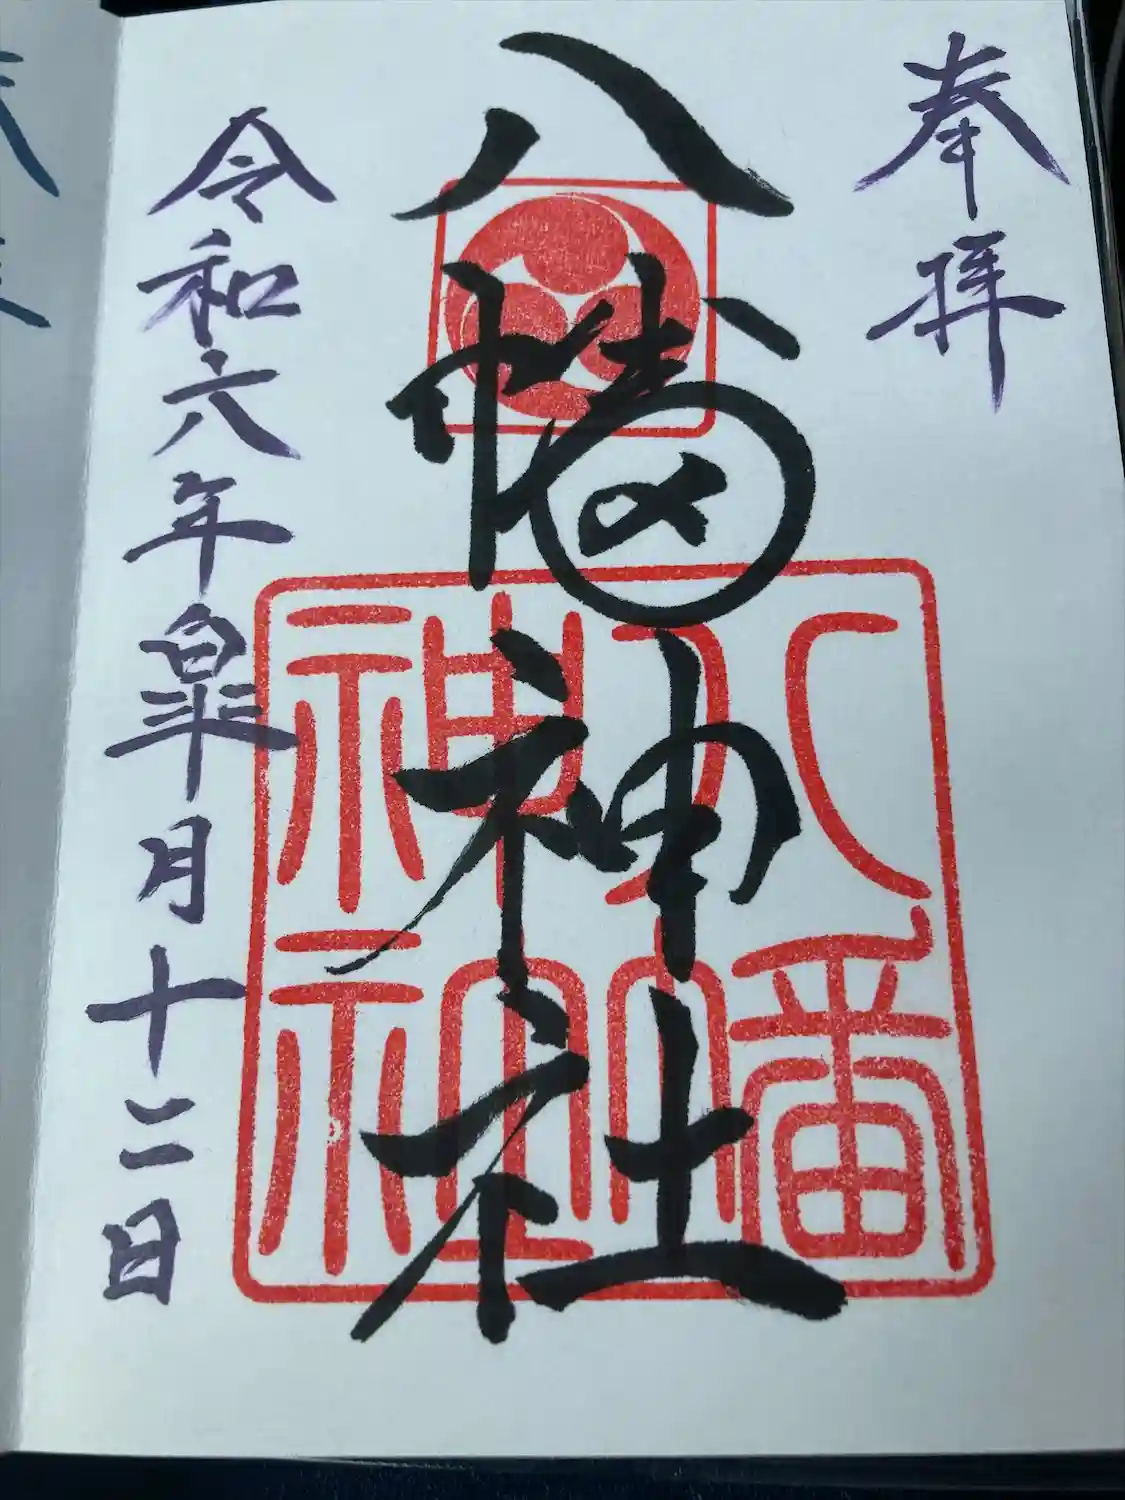 奉拝
八幡神社
八幡神社
令和六年皐月十二日